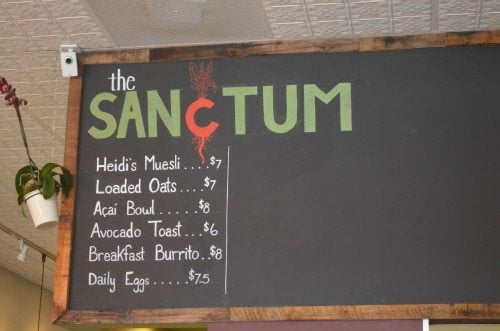 the
SANCTUM
Heidi's Muesli....$7
Loaded Oats....$7
Açaí Bowl.....$8
Avocado Toast...$6
Breakfast Burrito..$8
Daily Eggs.....$7.5